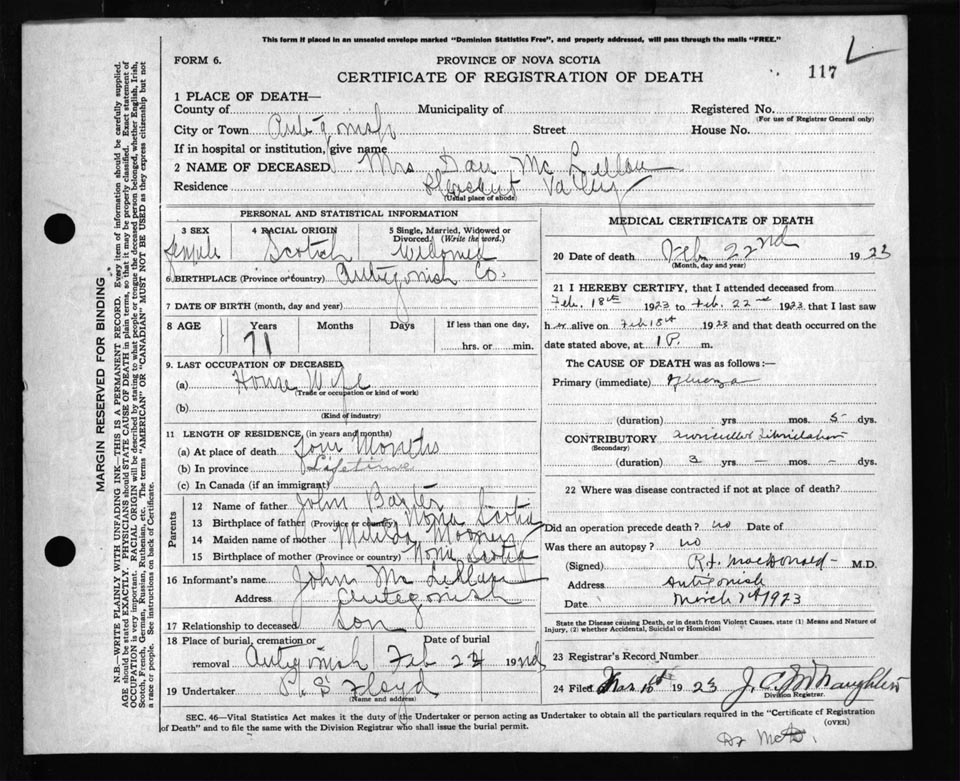 This form if placed in an unsealed envelope marked "Dominion Statistics Free", and properly addressed, will pass through the mails "FREE."
FORM 6.
PROVINCE OF NOVA SCOTIA
CERTIFICATE OF REGISTRATION OF DEATH
117
1 PLACE OF DEATH—
County of Municipality of Registered No.
(For use of Registrar General only)
City or Town Antigonish Street House No.
If in hospital or institution, give name
2 NAME OF DECEASED Mrs Dan Mc Lellan
Residence Valley
(Usual place of abode)
MARGIN RESERVED FOR BINDING
N.B.—WRITE PLAINLY WITH UNFADING INK—THIS IS A PERMANENT RECORD. Every item of information should be carefully supplied.
AGE should be stated EXACTLY. PHYSICIANS should STATE CAUSE OF DEATH in plain terms, so that it may be properly classified. Exact statement of
OCCUPATION is very important. RACIAL ORIGIN will be described by stating to what people or tongue the deceased person belonged, whether English, Irish,
Scotch, French, German, Russian, Ruthenian, etc. The terms "AMERICAN" or "CANADIAN" MUST NOT BE USED as they express citizenship but not
a race or people. See instructions on back of Certificate.
PERSONAL AND STATISTICAL INFORMATION
3 SEX 4 RACIAL ORIGIN 5 Single, Married, Widowed or
Divorced. (Write the word.)
Female Scotch Widowed
6 BIRTHPLACE (Province or country) Antigonish Co.
7 DATE OF BIRTH (month, day and year)
8 AGE Years Months Days If less than one day,
71 hrs. or min.
9. LAST OCCUPATION OF DECEASED
(a) House Wife
(Trade or occupation or kind of work)
(b)
(Kind of industry)
11 LENGTH OF RESIDENCE (in years and months)
(a) At place of death Four Months
(b) In province Lifetime
(c) In Canada (if an immigrant)
Parents
12 Name of father John Baxter
13 Birthplace of father (Province or country) Nova Scotia
14 Maiden name of mother Mooney
15 Birthplace of mother (Province or country) Nova Scotia
16 Informant's name John Mc Lellan
Address Antigonish
17 Relationship to deceased Son
18 Place of burial, cremation or Date of burial
removal Antigonish Feb 24 192
19 Undertaker P. S Floyd
(Name and address)
MEDICAL CERTIFICATE OF DEATH
20 Date of death Feb 22nd 1923
(Month, day and year)
21 I HEREBY CERTIFY, that I attended deceased from
Feb. 18th 1923 to Feb. 22nd 1923 that I last saw
her alive on Feb 18th 1923 and that death occurred on the
date stated above, at 1 P. m.
The CAUSE OF DEATH was as follows:—
Primary (immediate)
(duration) yrs mos. 5 dys.
CONTRIBUTORY
(Secondary)
(duration) 3 yrs. – mos. – dys.
22 Where was disease contracted if not at place of death?
Did an operation precede death? no Date of
Was there an autopsy? no
(Signed) MacDonald M.D.
Address Antigonish
Date March 1923
State the Disease causing Death, or in death from Violent Causes, state (1) Means and Nature of
Injury, (2) whether Accidental, Suicidal or Homicidal
23 Registrar's Record Number
24 Filed Mar 1923 J. C. McNaughton
Division Registrar.
SEC. 46—Vital Statistics Act makes it the duty of the Undertaker or person acting as Undertaker to obtain all the particulars required in the "Certificate of Registration
of Death" and to file the same with the Division Registrar who shall issue the burial permit.
(OVER)